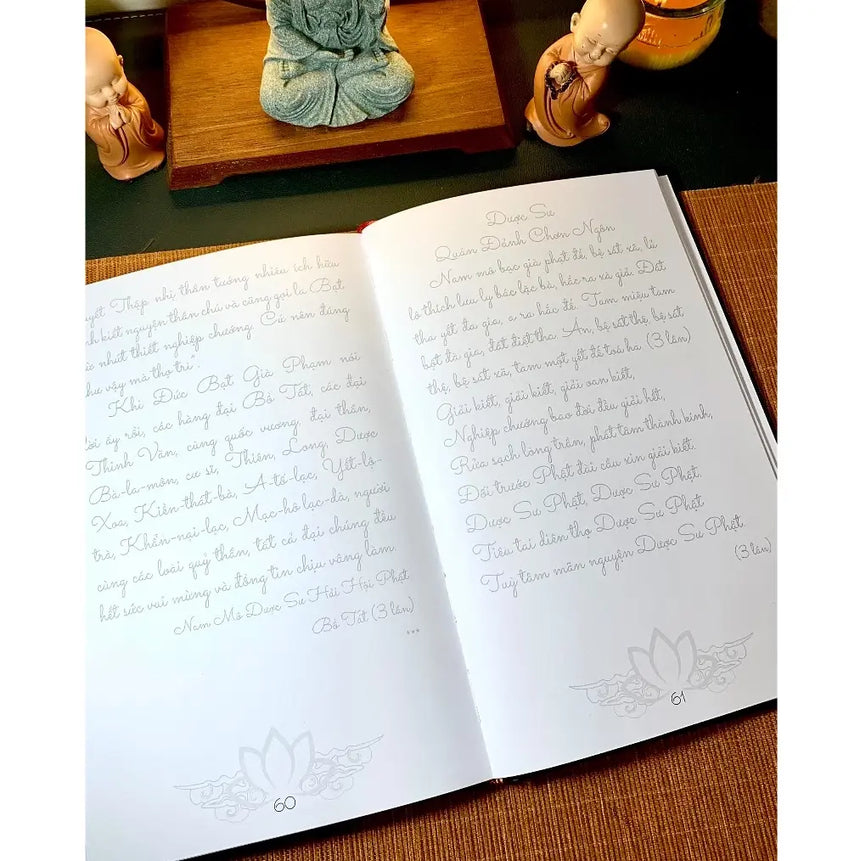 yết Thập nhị thần tướng nhiêu ích hữu
h kiết nguyện thần chú và cũng gọi là Bạt
nhứt thiết nghiệp chướng. Cứ nên đúng
hư vậy mà thọ trì".
Khi Đức Bạt Già Phạm nói
lời ấy rồi, các hàng đại Bồ Tát, các đại
Thinh Văn, cùng quốc vương, đại thần,
Bà-la-môn, cư sĩ, Thiên, Long, Dược
Xoa, Kiền-thát-bà, A-tố-lạc, Yết-lộ-
trà, Khẩn-nại-lạc, Mạc-hô lạc-dà, người
cùng các loài quỷ thần, tất cả đại chúng đều
hết sức vui mừng và đồng tin chịu vâng làm.
Nam Mô Dược Sư Hải Hội Phật
Bồ Tát (3 lần)
***
60
Dược Sư
Quán Đảnh Chơn Ngôn
Nam mô bạc già phạt đế, bệ sát xã, lủ
lô thích lưu ly bác lặc bà, hắc ra xà giã. Đát
tha yết đa gia, a ra hắc đế. Tam miệu tam
bột đà gia, đát điệt tha. Án, bệ sát thệ, bệ sát
thệ, bệ sát xã, tam một yết đế toá ha. (3 lần)
Giải kiết, giải kiết, giải oan kiết,
Nghiệp chướng bao đời đều giải hết,
Rửa sạch lòng trần, phát tâm thành kính,
Đối trước Phật đài cầu xin giải kiết.
Dược Sư Phật, Dược Sư Phật.
Tiêu tai diên thọ Dược Sư Phật
Tuỳ tâm mãn nguyện Dược Sư Phật.
(3 lần)
61